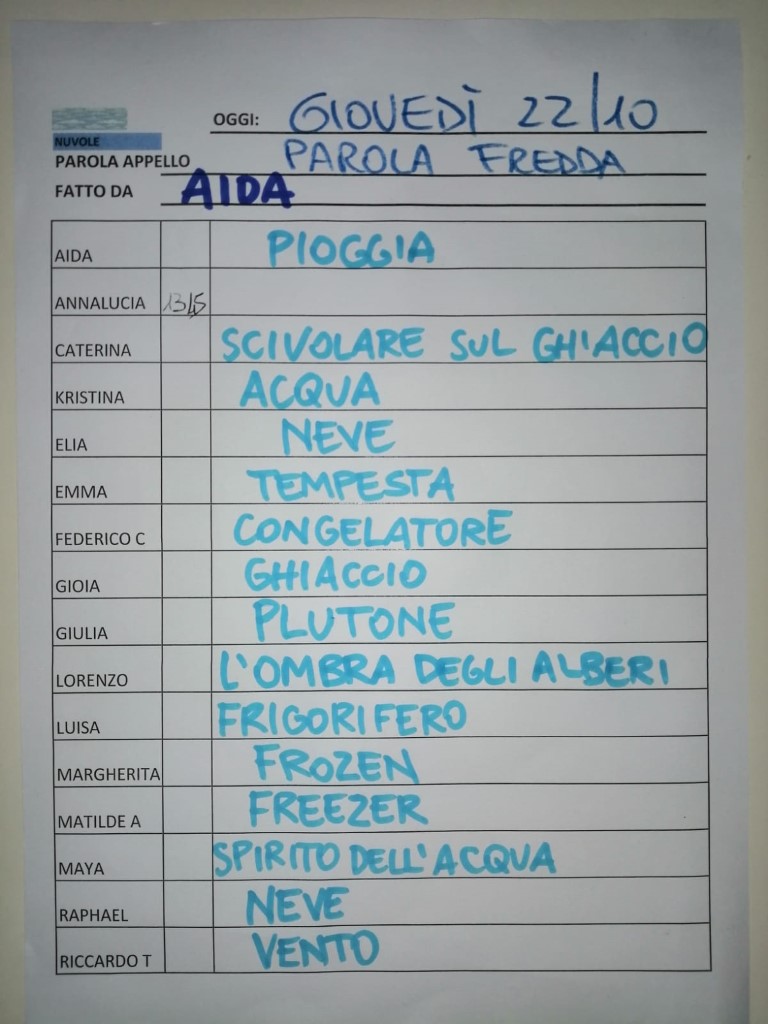 OGGI: GIOVEDÌ 22/10
NUVOLE
PAROLA APPELLO PAROLA FREDDA
FATTO DA AIDA
AIDA PIOGGIA
ANNALUCIA 1345
CATERINA SCIVOLARE SUL GHIACCIO
KRISTINA ACQUA
ELIA NEVE
EMMA TEMPESTA
FEDERICO C CONGELATORE
GIOIA GHIACCIO
GIULIA PLUTONE
LORENZO L'OMBRA DEGLI ALBERI
LUISA FRIGORIFERO
MARGHERITA FROZEN
MATILDE A FREEZER
MAYA SPIRITO DELL'ACQUA
RAPHAEL NEVE
RICCARDO T VENTO